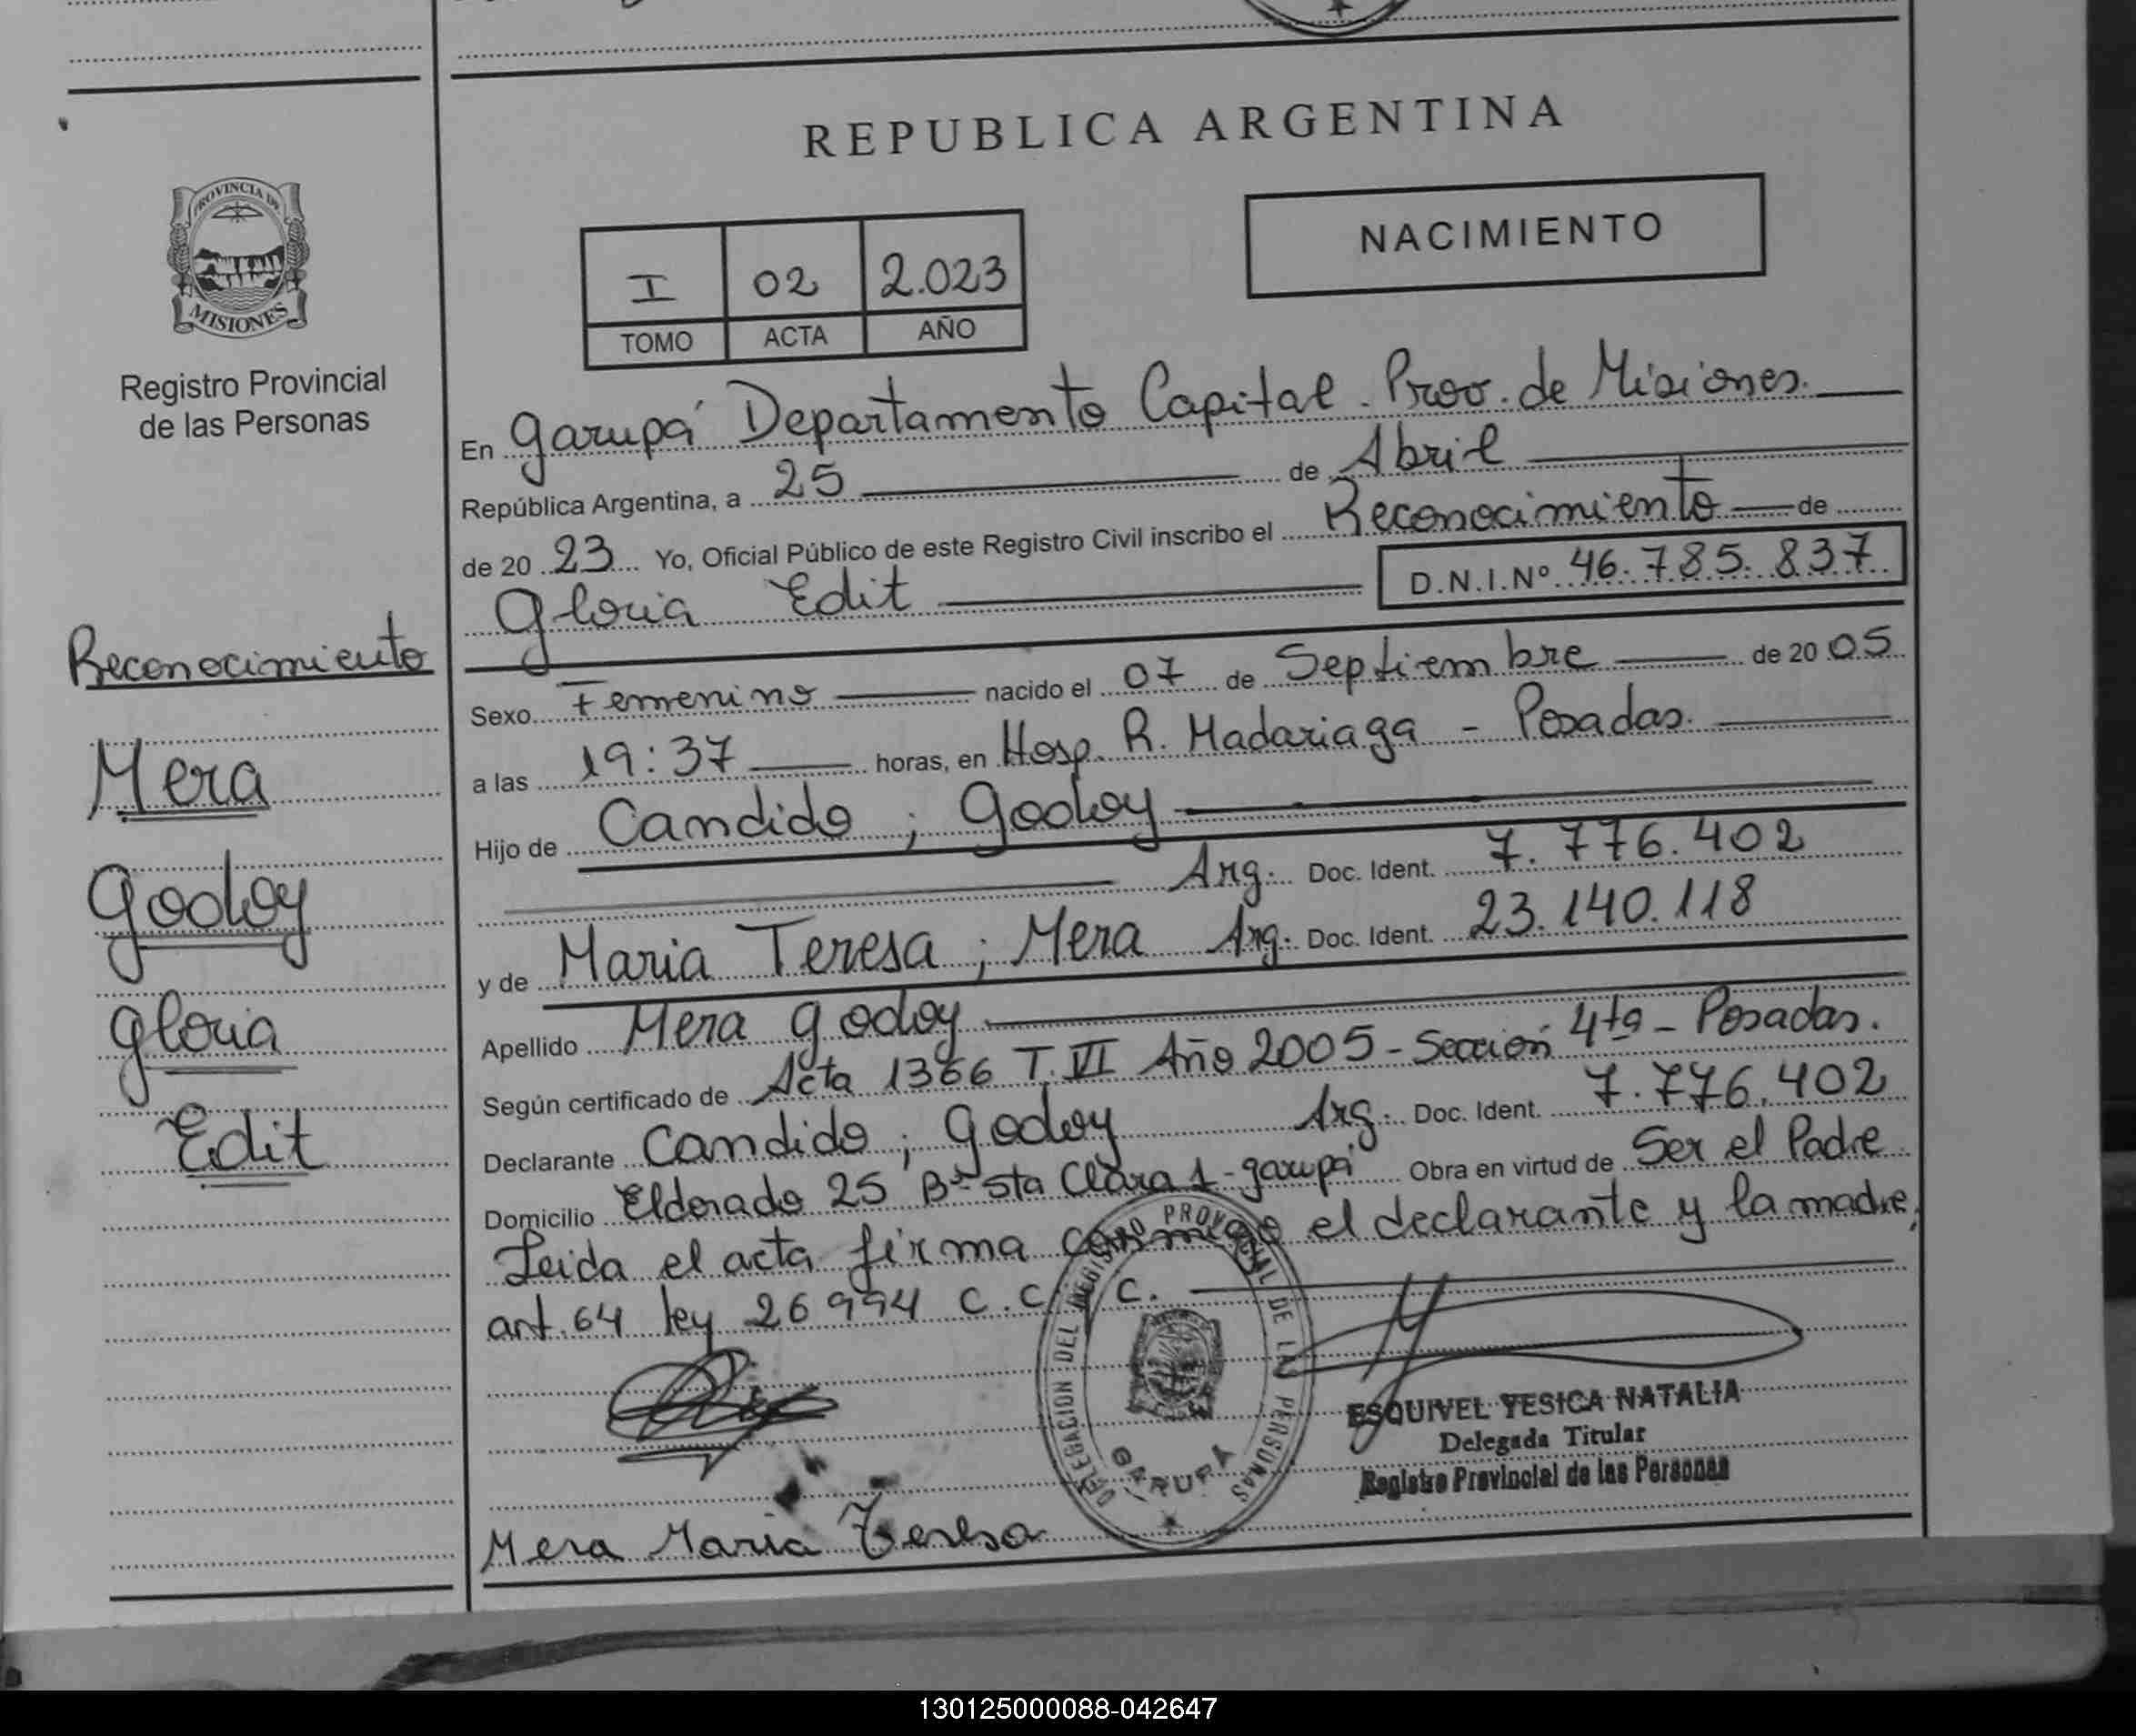 REPUBLICA ARGENTINA
PROVINCIA DE
MISIONES
Registro Provincial
de las Personas
NACIMIENTO
I 02 2.023
TOMO ACTA AÑO
En Garupá Departamento Capital. Prov. de Misiones.
República Argentina, a 25 de Abril
de 20 23 Yo, Oficial Público de este Registro Civil inscribo el Reconocimiento de
Gloria Edit D.N.I.Nº 46.785.837
Sexo Femenino nacido el 07 de Septiembre de 20 05
a las 19:37 horas, en Hosp. R. Madariaga - Posadas.
Hijo de Candido ; Godoy
Arg. Doc. Ident. 7.776.402
y de Maria Teresa ; Mera Arg. Doc. Ident. 23.140.118
Apellido Mera Godoy
Según certificado de Acta 1366 T. VI Año 2005 - Sección 4ta - Posadas.
Declarante Candido ; Godoy Arg. Doc. Ident. 7.776.402
Domicilio Eldorado 25 Bº Sta Clara 1 - Garupá Obra en virtud de Ser el Padre
Leida el acta firma conmigo el declarante y la madre,
art. 64 ley 26994 C.C. y C.
Reconocimiento
Mera
Godoy
Gloria
Edit
DELEGACION DEL REGISTRO PROVINCIAL DE LAS PERSONAS
GARUPÁ
ESQUIVEL YESICA NATALIA
Delegada Titular
Registro Provincial de las Personas
Mera Maria Teresa
130125000088-042647